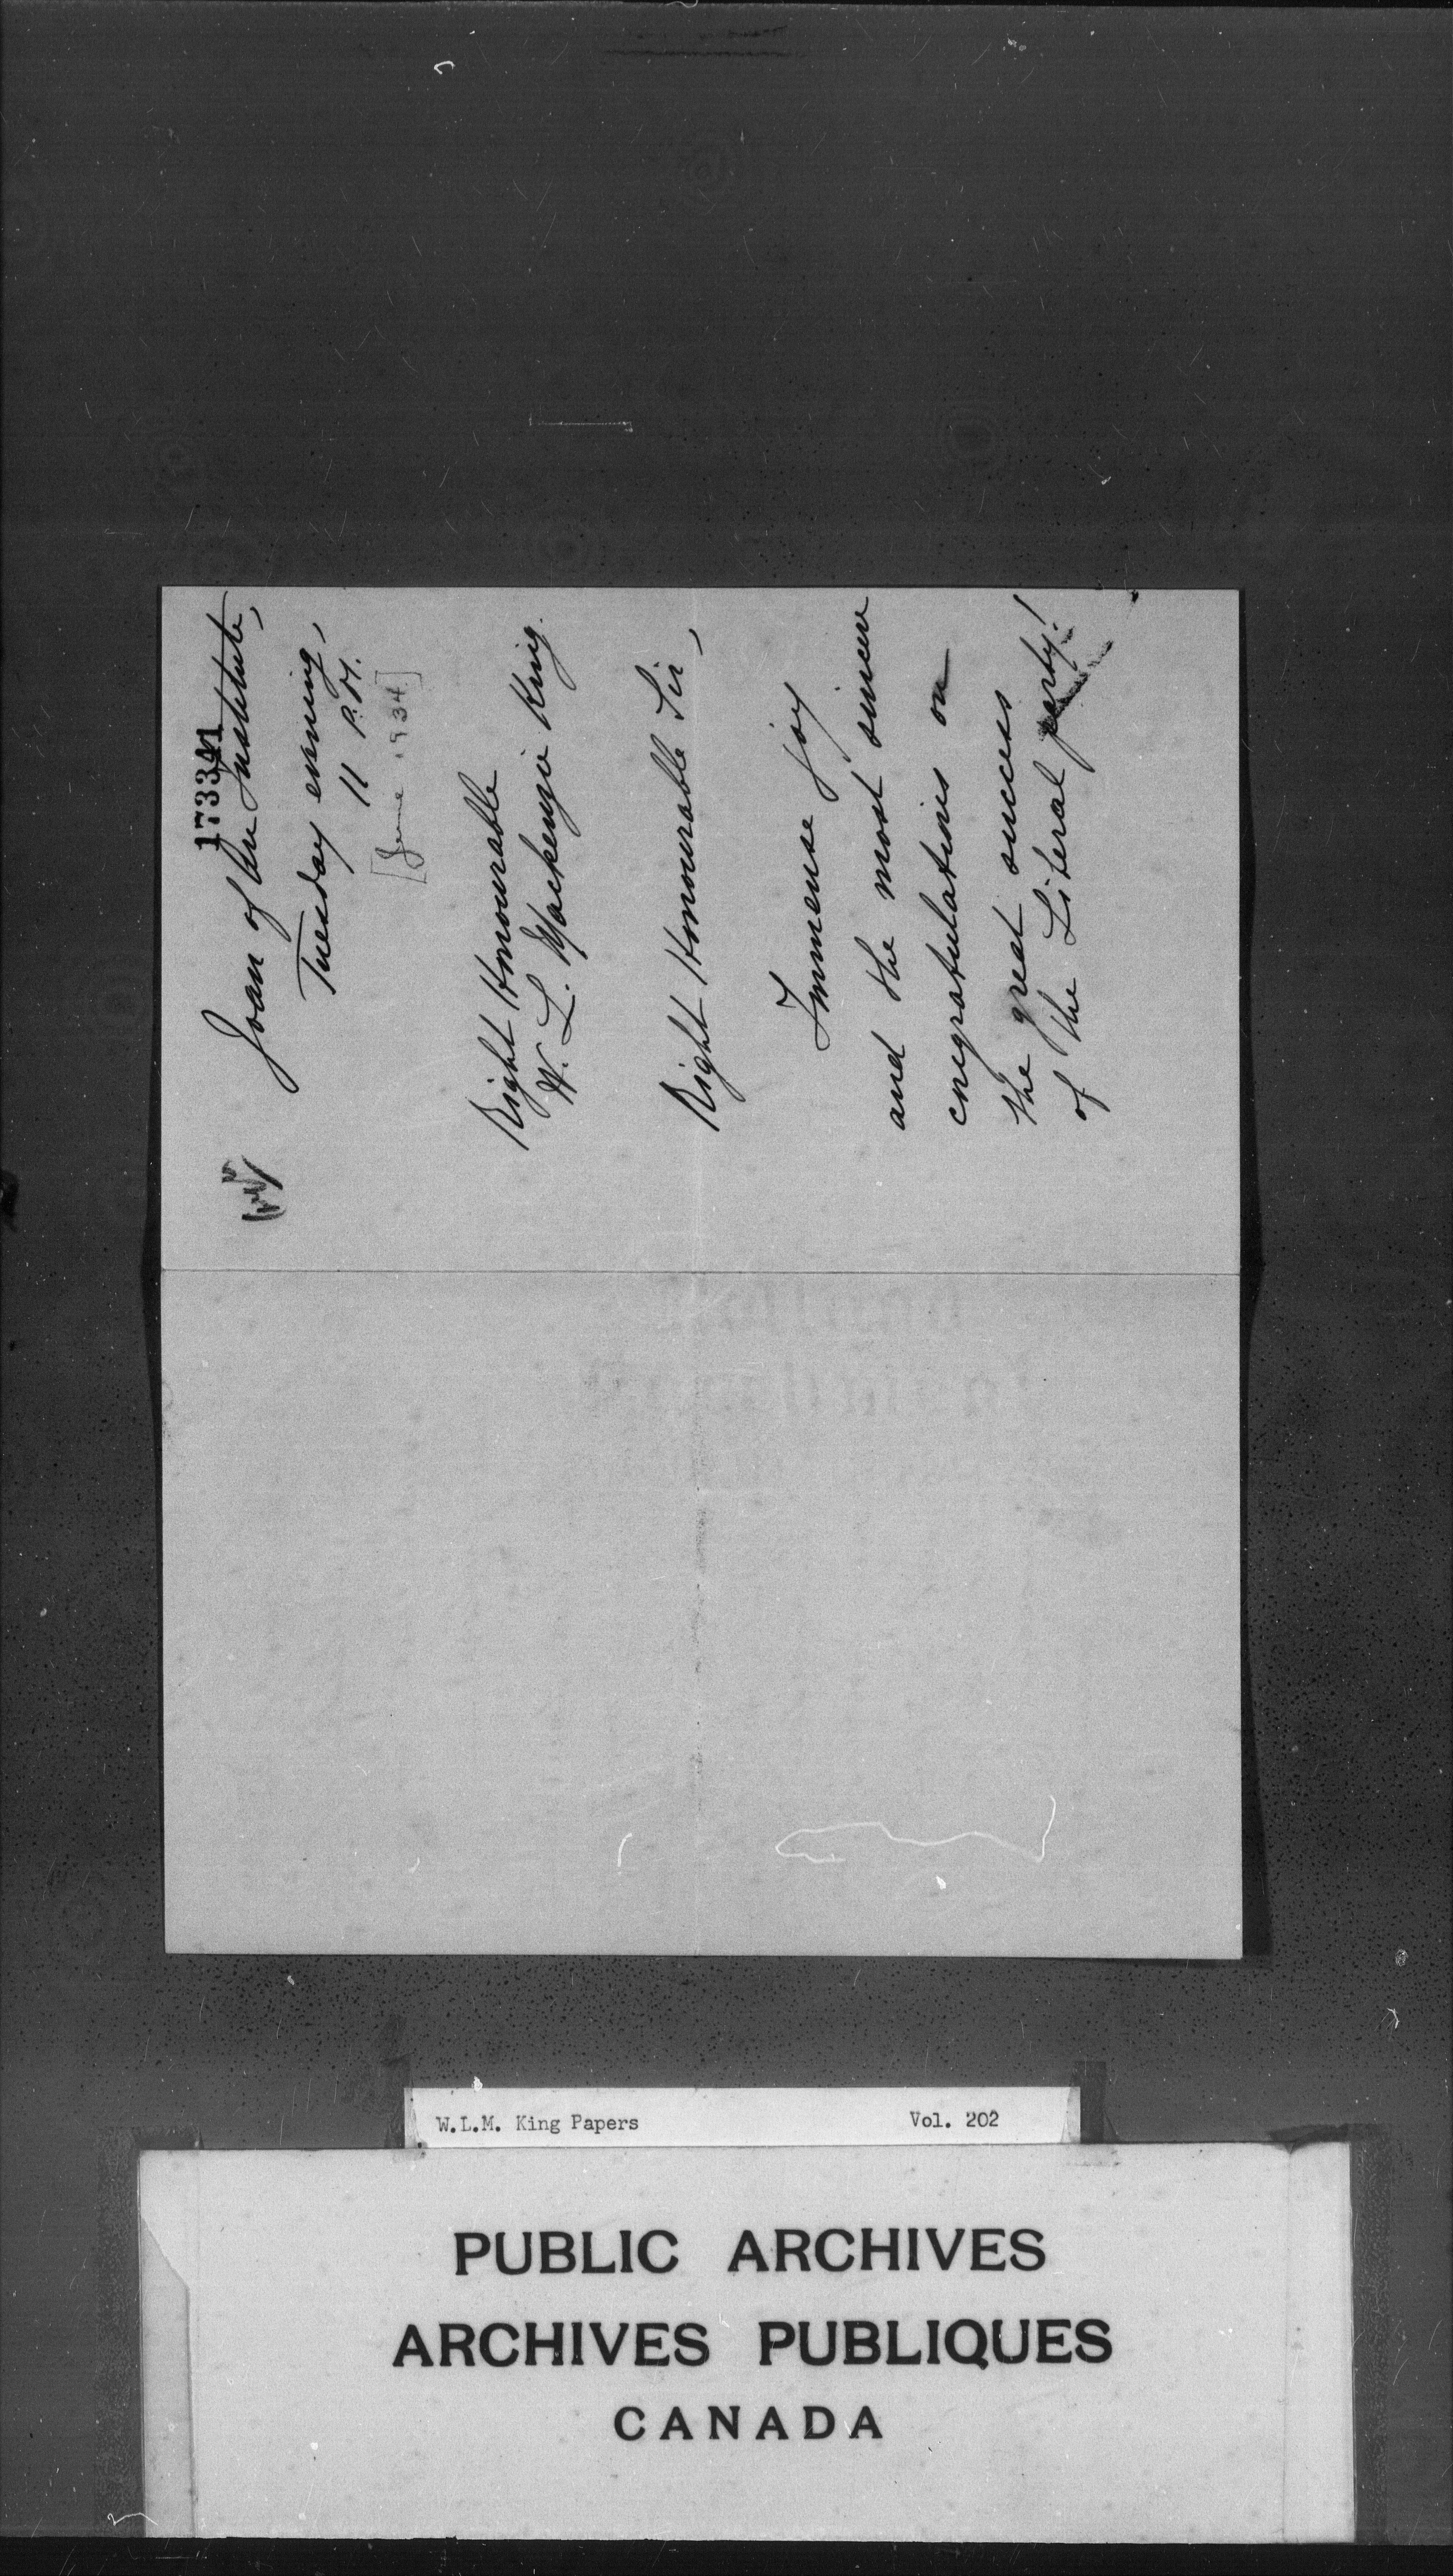 173341
Joan of Arc Institute,
Tuesday evening,
11 P.M.
[June 1934]
Right Honourable
W. L. Mackenzie King.
Right Honourable Sir,
Immense joy
and the most sincere
congratulations on
the great success
of the Liberal party!
W.L.M. King Papers Vol. 202
PUBLIC ARCHIVES
ARCHIVES PUBLIQUES
CANADA